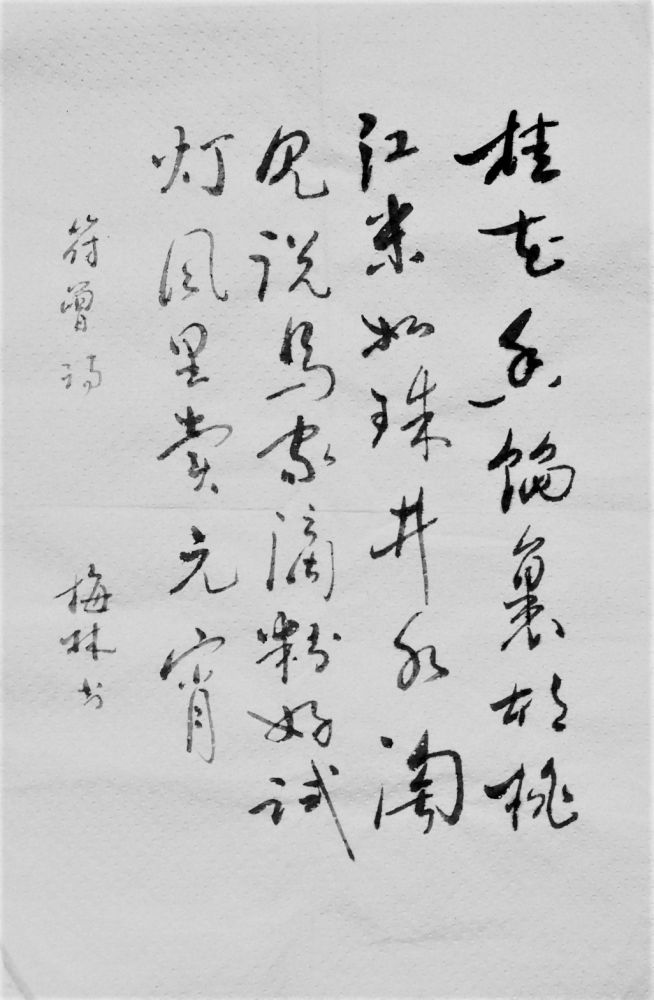 桂花香馅裹胡桃
江米如珠井水淘
见说马家滴粉好试
灯风里卖元宵
符曾诗
梅林书